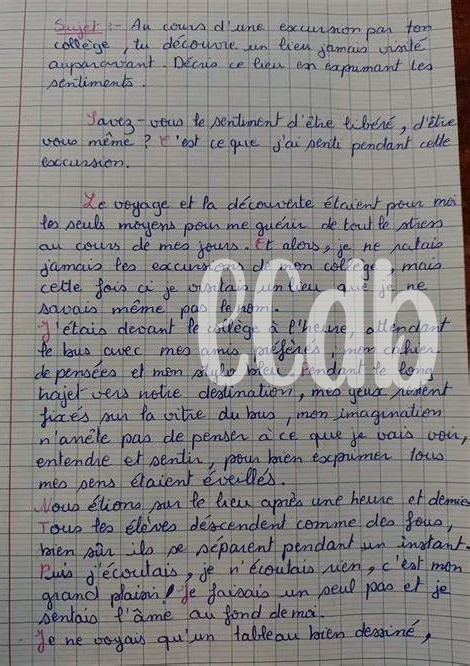 Sujet :- Au cours d'une excursion par ton
collège, tu découvre un lieu jamais visité
auparavant. Décris ce lieu en exprimant tes
sentiments.
Savez-vous le sentiment d'être libéré, d'être
vous même ? C'est ce que j'ai senti pendant cette
excursion.
Le voyage et la découverte étaient pour moi
les seuls moyens pour me guérir de tout le stress
au cours de mes jours. Et alors, je ne ratais
jamais les excursions de mon collège, mais
cette fois ci je visitais un lieu que je ne
savais même pas le nom.
J'étais devant le collège à l'heure, attendant
le bus avec mes amis préférés, mon cahier
de pensées et mon stylo bleu. Pendant le long
trajet vers notre destination, mes yeux restent
fixés sur la vitre du bus, mon imagination
n'arrête pas de penser à ce que je vais voir,
entendre et sentir, pour bien exprimer tous
mes sens étaient éveillés.
Nous étions sur le lieu après une heure et demie.
Tous les élèves descendent comme des fous,
bien sûr ils se séparent pendant un instant.
Puis j'écoutais, je n'écoutais rien, c'est mon
grand plaisir! Je faisais un seul pas et je
sentais l'âme au fond de moi.
Je ne voyais qu'un tableau bien dessiné,
eCdb